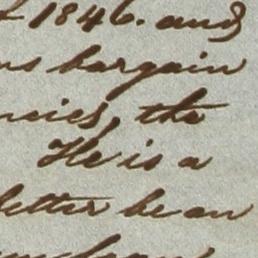 1846. and
bargain
the
He is a
letter be an